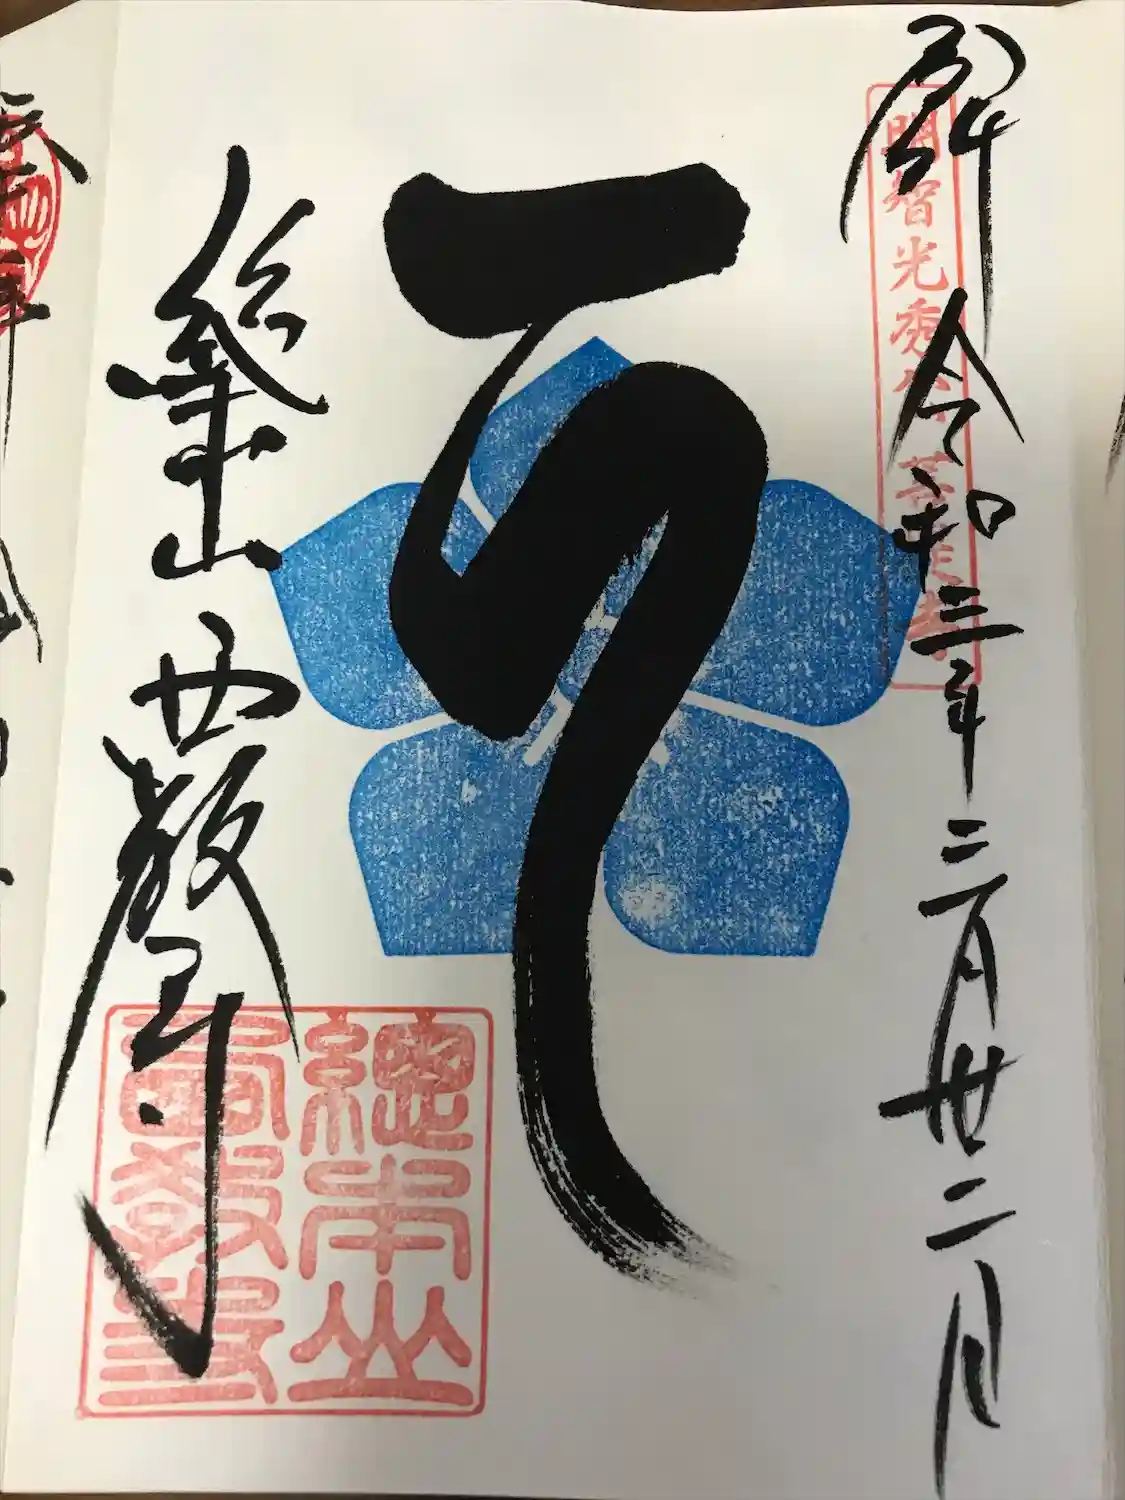 拝 令和三年三月廿二日
明智光秀公菩提寺
総本山 西教寺
總本山
西教寺